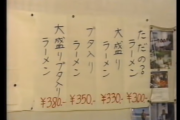 ただのラーメン ¥300-
大盛りラーメン ¥330-
ブタ入りラーメン ¥350-
大盛りブタ入りラーメン ¥380-